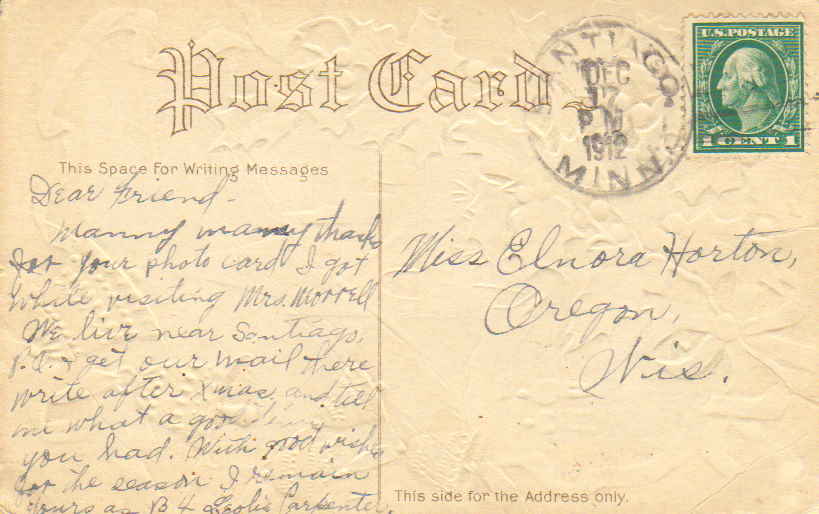 Post Card
SANTIAGO
DEC
17
P M
1912
MINN.
U.S. POSTAGE
1 CENT 1
This Space For Writing Messages
Dear Friend -
Manny many thanks
for your photo card I got
while visiting Mrs. Morrell
We live near Santiago,
P.O. & get our mail there
write after Xmas and tell
me what a good
you had. With good wishes
for the season I remain
yours as B 4 Leslie Carpenter.
Miss Elnora Horton,
Oregon,
Wis.
This side for the Address only.